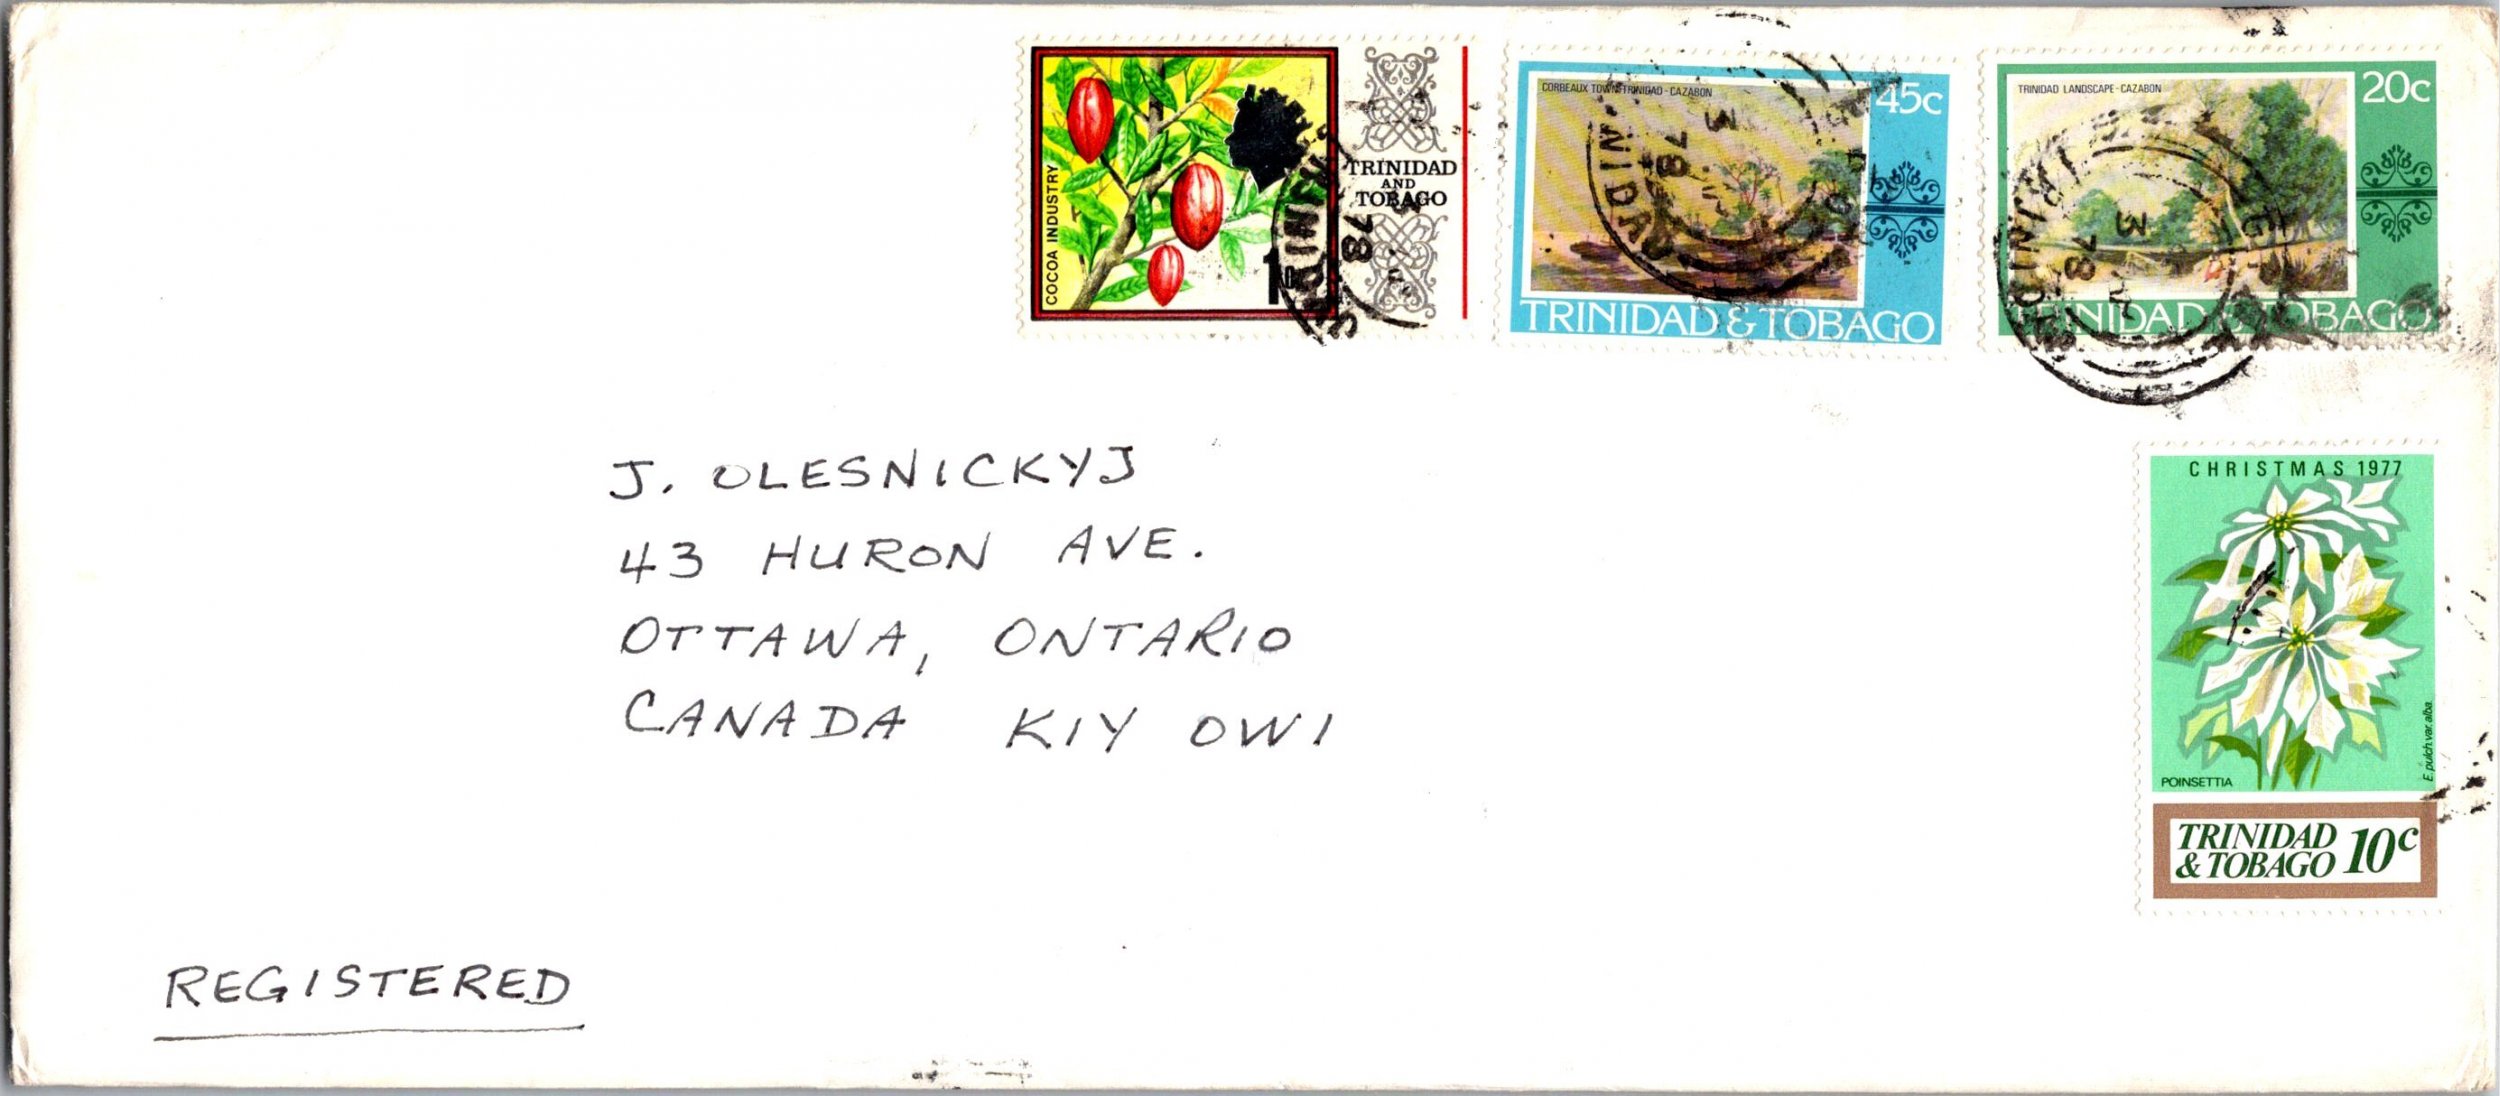 COCOA INDUSTRY
TRINIDAD
AND
TOBAGO
CORBEAUX TOWN-TRINIDAD - CAZABON
45c
TRINIDAD & TOBAGO
TRINIDAD LANDSCAPE - CAZABON
20c
TRINIDAD & TOBAGO
TRINIDAD
78
TRINIDAD
3
78
TRINIDAD
3
78
J. OLESNICKYJ
43 HURON AVE.
OTTAWA, ONTARIO
CANADA K1Y OW1
CHRISTMAS 1977
POINSETTIA
E. pulch. var. alba.
TRINIDAD
& TOBAGO 10c
REGISTERED